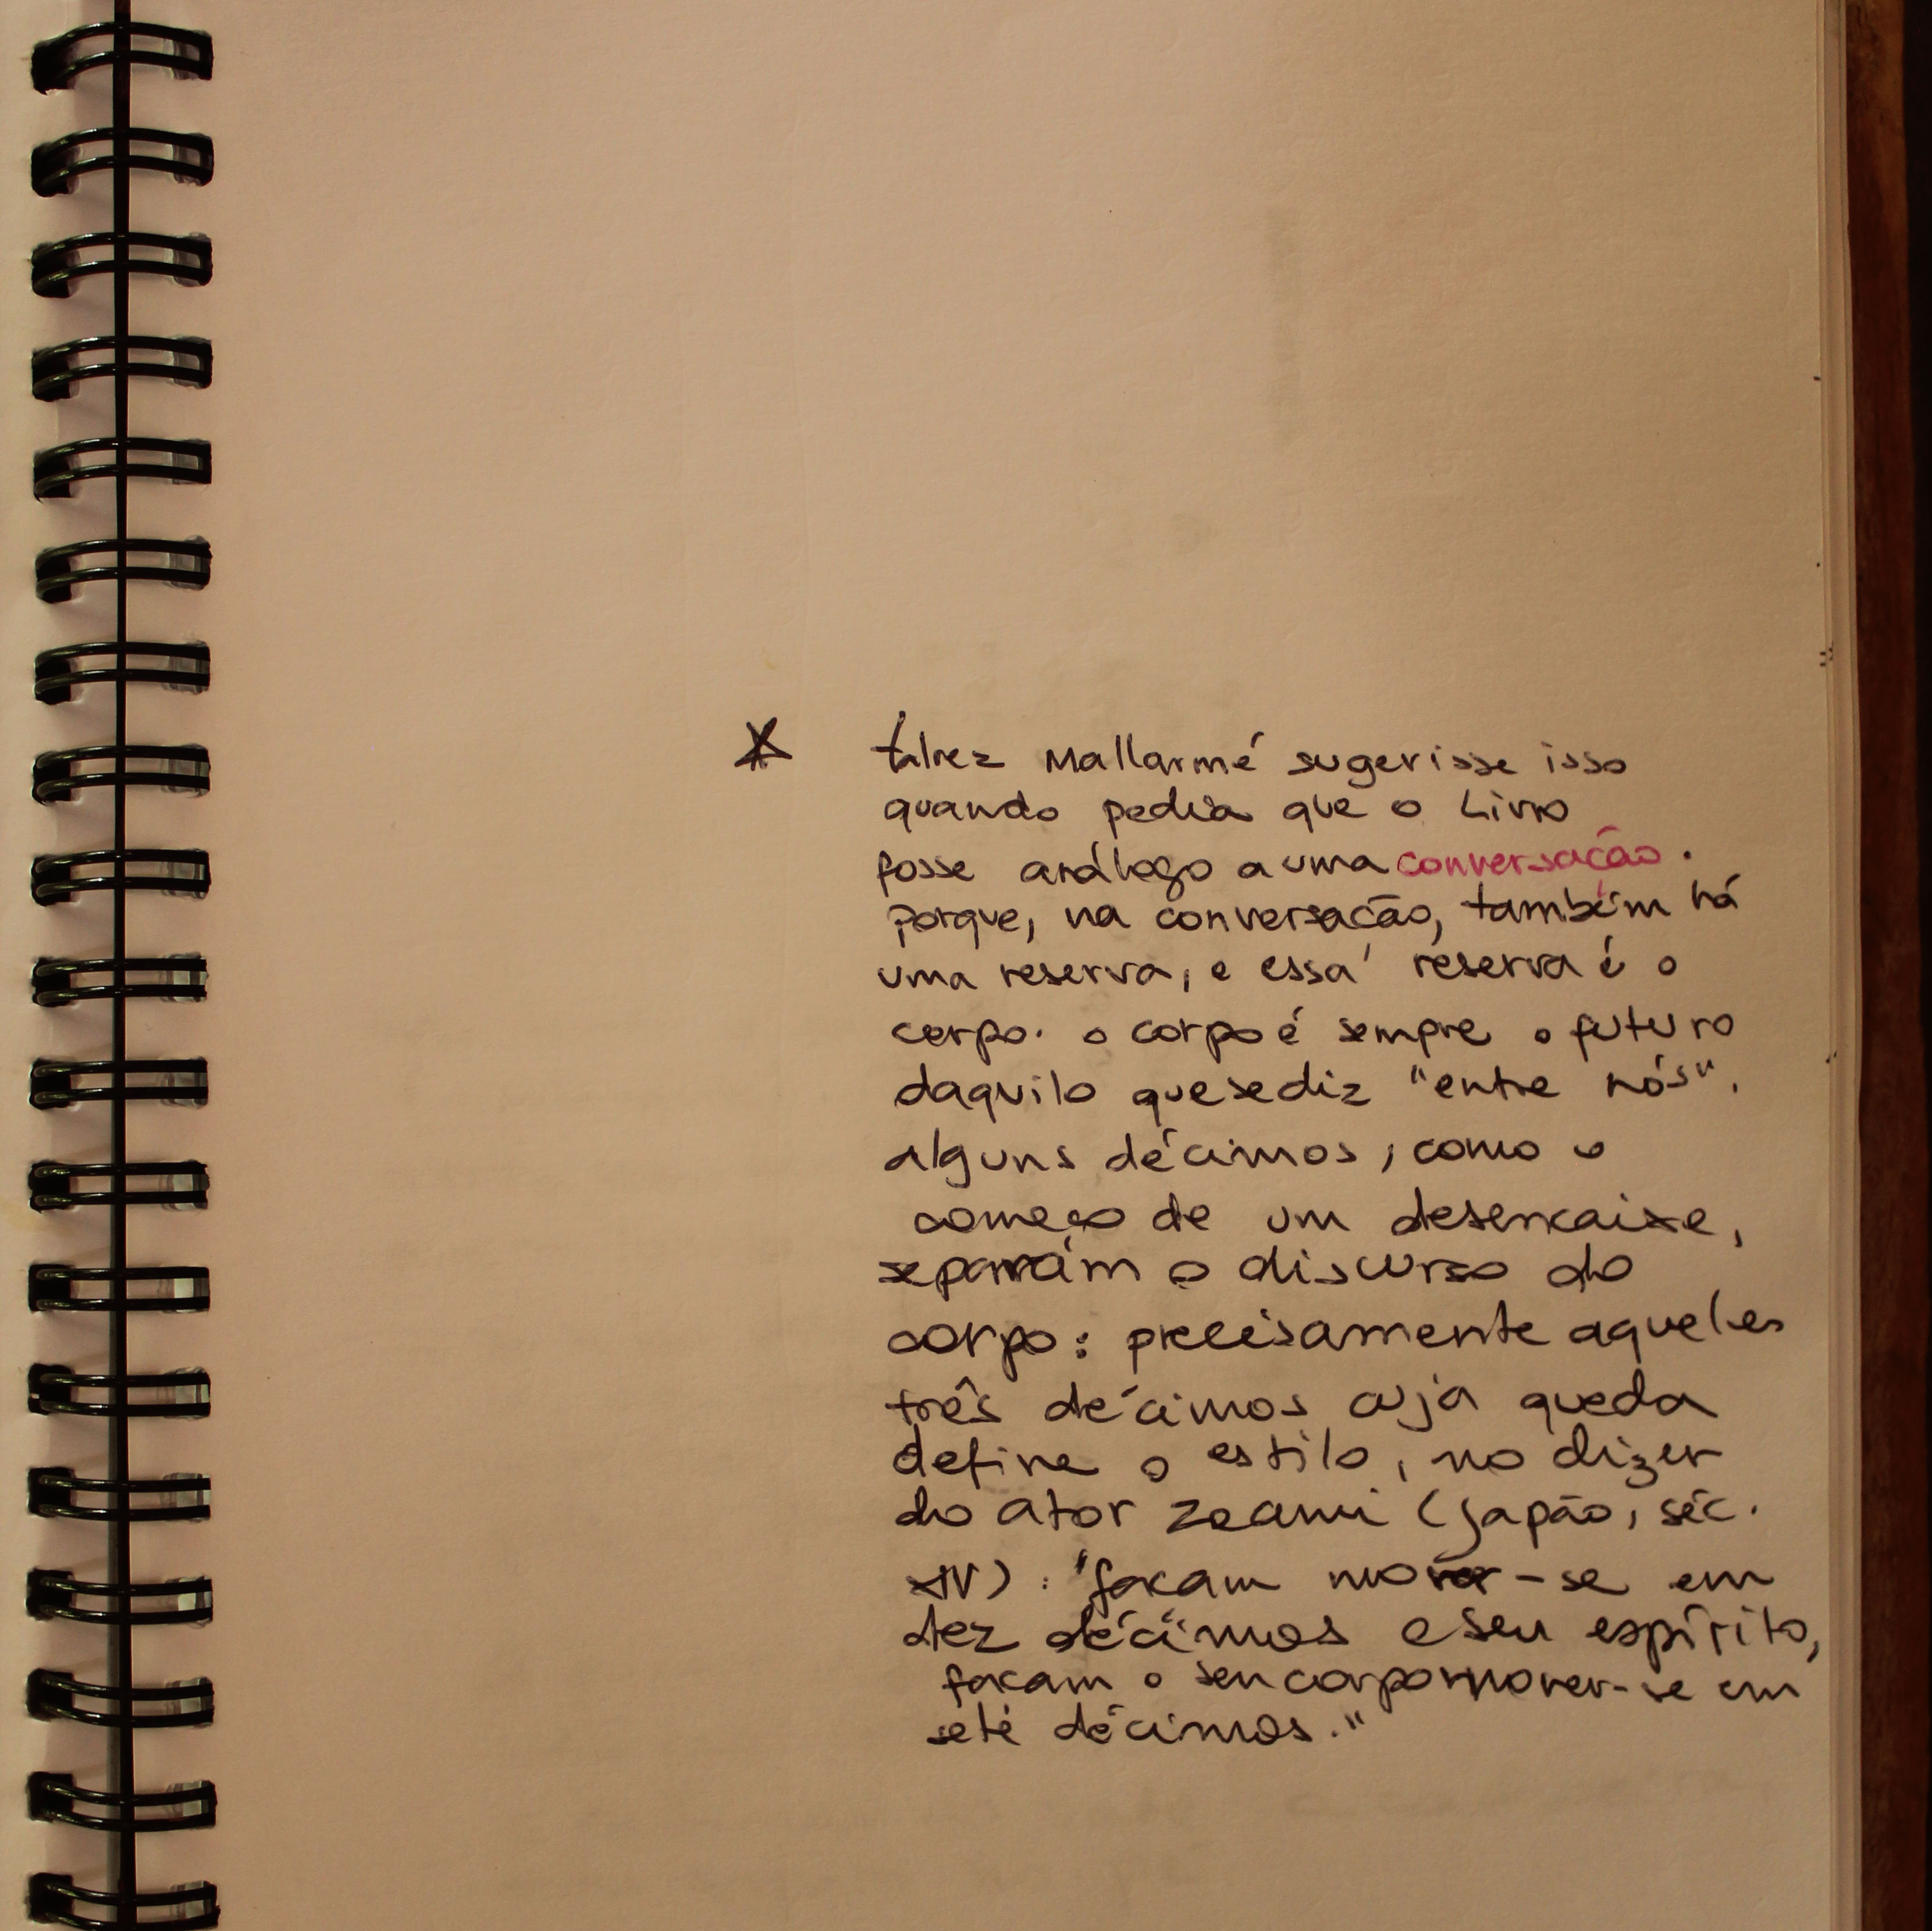 * talvez Mallarmé sugerisse isso
quando pedia que o Livro
fosse análogo a uma conversação.
porque, na conversação, também há
uma reserva, e essa reserva é o
corpo. o corpo é sempre o futuro
daquilo que se diz "entre nós".
alguns décimos, como o
começo de um desencaixe,
separam o discurso do
corpo: precisamente aqueles
três décimos cuja queda
define o estilo, no dizer
do ator Zeami (Japão, séc.
XIV): "façam mover-se em
dez décimos o seu espírito,
façam o seu corpo mover-se em
sete décimos."